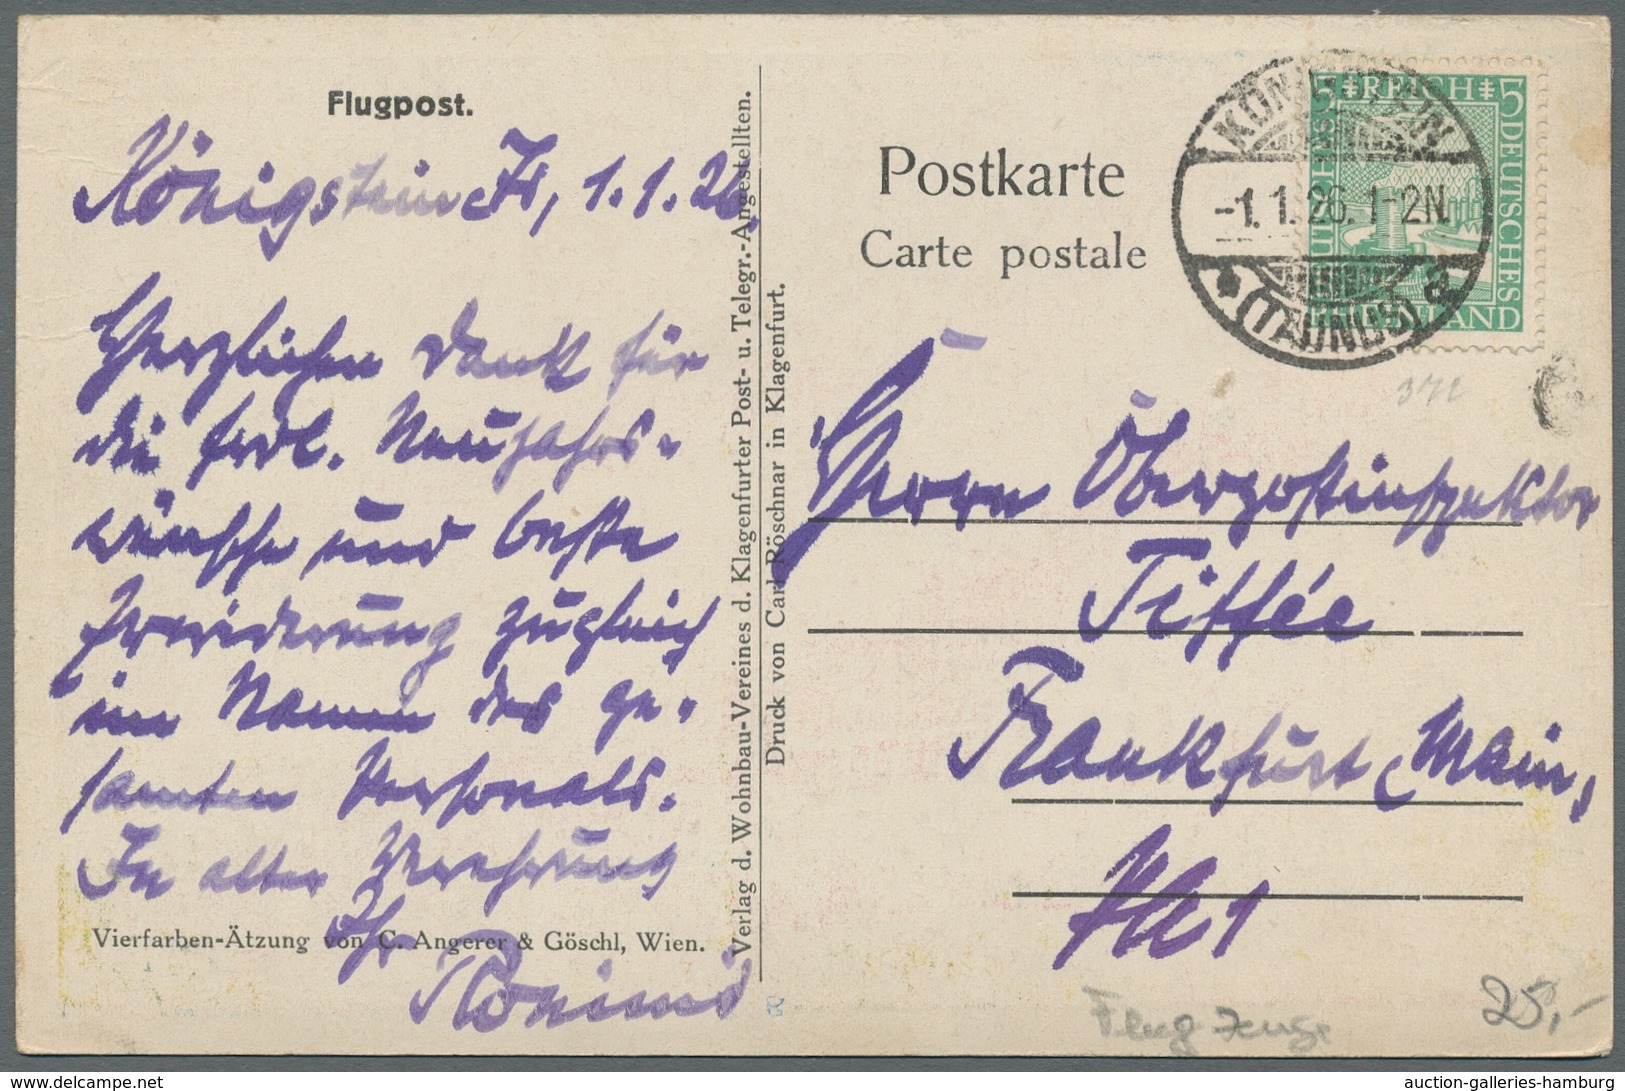 Flugpost.
Königstein Ts, 1.1.26.
Herzlichen Dank für
die frdl. Neujahrs-
wünsche und beste
Erwiderung zugleich
im Namen des ge-
samten Personals.
In alter Verehrung
Ihr
Vierfarben-Ätzung von C. Angerer & Göschl, Wien.
Verlag d. Wohnbau-Vereines d. Klagenfurter Post- u. Telegr.-Angestellten.
Druck von Carl Röschnar in Klagenfurt.
Postkarte
Carte postale
KÖNIGSTEIN
-1. 1. 26. 1-2N.
* (TAUNUS) a
5 REICH 5
DEUTSCHES
DEUTSCHES
DEUTSCHLAND
372
Herrn Oberpostinspektor
Tiffée
Frankfurt (Main)
PA 1
Flugzeuge
25,-
delcampe.net
auction-galleries-hamburg